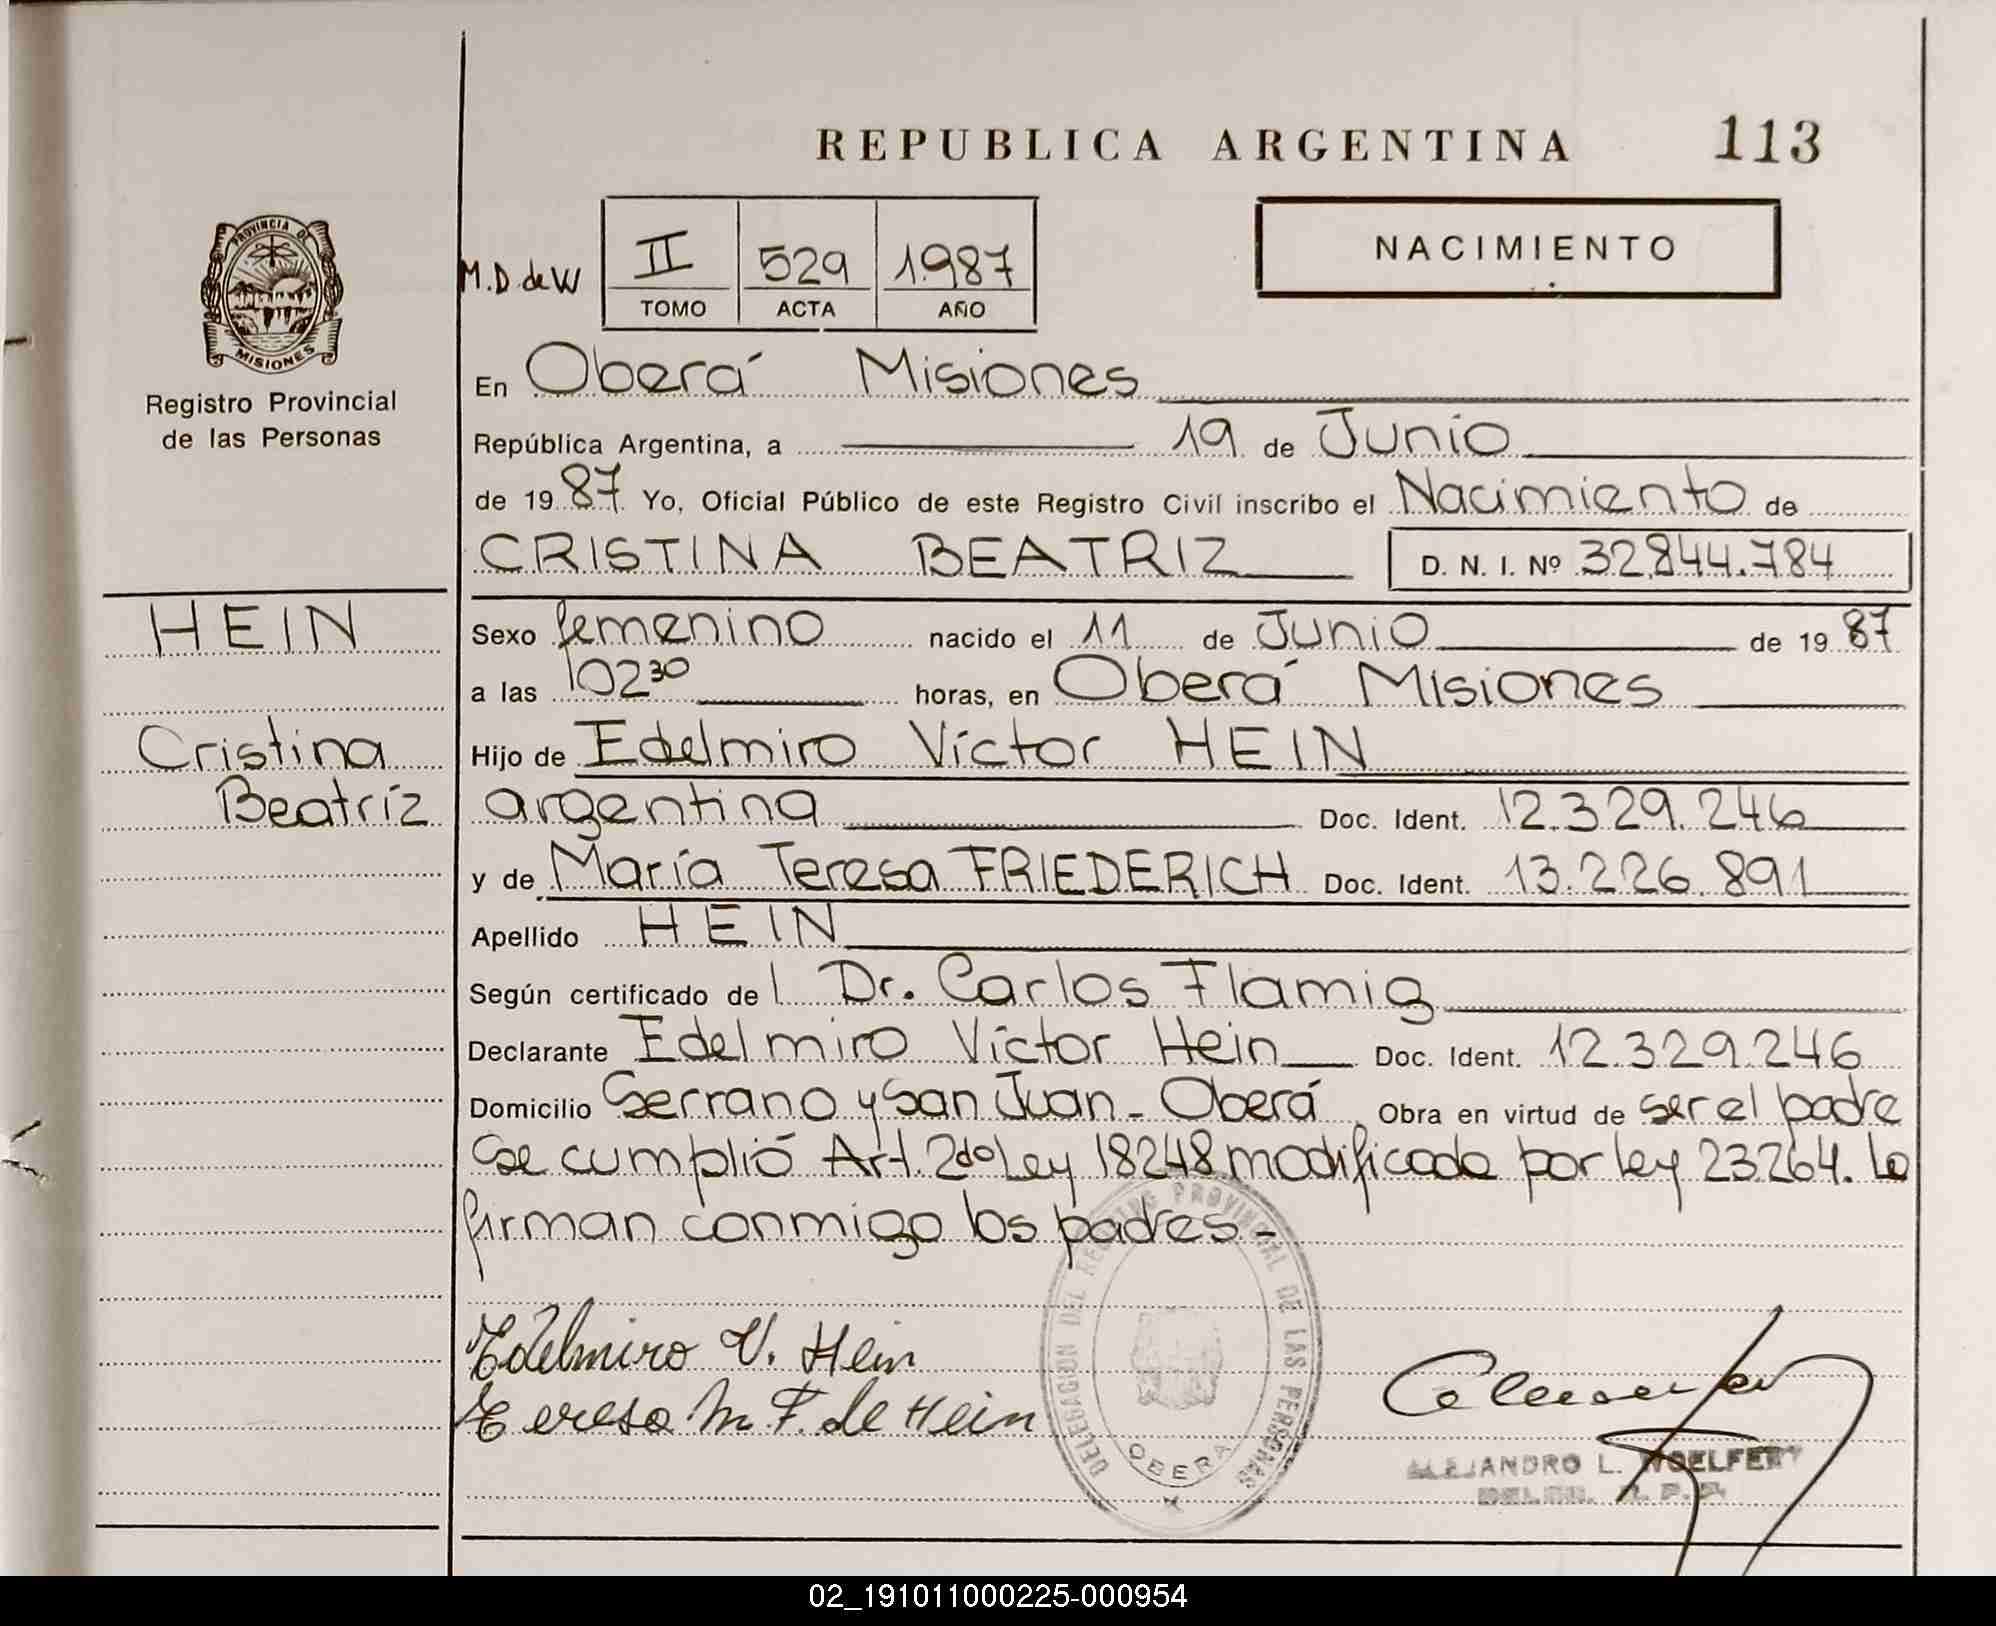 REPUBLICA ARGENTINA 113
PROVINCIA DE
MISIONES
Registro Provincial
de las Personas
M.D. de W
II 529 1.987
TOMO ACTA AÑO
NACIMIENTO
En Oberá Misiones
República Argentina, a 19 de Junio
de 19 87 Yo, Oficial Público de este Registro Civil inscribo el Nacimiento de
CRISTINA BEATRIZ D. N. I. Nº 32.844.784
HEIN
Cristina
Beatríz
Sexo femenino nacido el 11 de Junio de 19 87
a las 102³⁰ horas, en Oberá Misiones
Hijo de Edelmiro Víctor HEIN
argentina Doc. Ident. 12.329.246
y de María Teresa FRIEDERICH Doc. Ident. 13.226.891
Apellido HEIN
Según certificado de l Dr. Carlos Flamig
Declarante Edelmiro Víctor Hein Doc. Ident. 12.329.246
Domicilio Serrano y San Juan - Oberá Obra en virtud de ser el padre
Se cumplió Art. 2do Ley 18248 modificada por ley 23.264. Lo
firman conmigo los padres -
Edelmiro V. Hein
Teresa M F. de Hein
DELEGACION DEL REGISTRO PROVINCIAL DE LAS PERSONAS
OBERA
ALEJANDRO L. WOELFERT
02_191011000225-000954